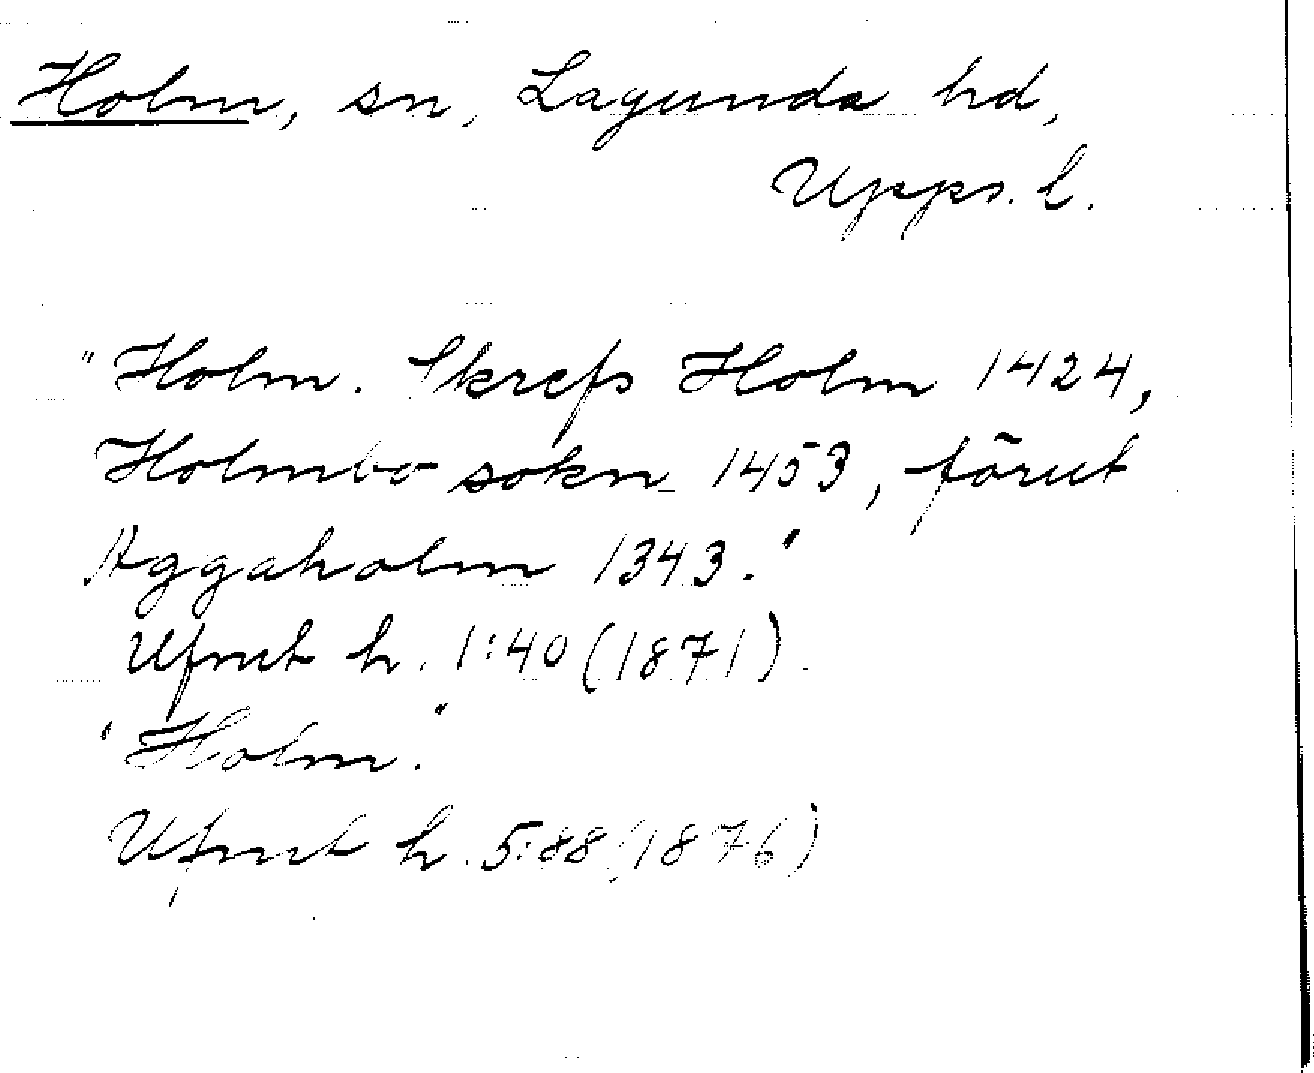 Holm, sn, Lagunda hd,
Upps. l.
"Holm. Skrefs Holm 1424,
Holmbo sokn 1453, förut
Aggaholm 1343."
Ufmt h. 1:40 (1871).
"Holm."
Ufmt h. 5:88 (1876)